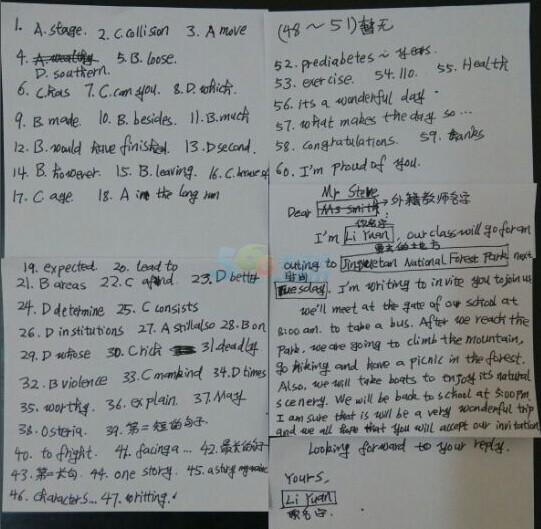 1. A. stage. 2. C. collision 3. A move
4. A. wealthy 5. B. loose.
D. southern.
6. C. has 7. C. can you. 8. D. which.
9. B. made. 10. B. besides. 11. B. much
12. B. would have finished. 13. D second.
14. B. however. 15. B. leaving. 16. C. because of
17. C age. 18. A in the long run
19. expected. 20. lead to
21. B areas 22. C and. 23. D better
24. D determine 25. C consists
26. D institutions 27. A skill also 28. B on
29. D whose 30. C rich 31. deadly
32. B violence 33. C mankind 34. D times
35. worthy. 36. explain. 37. May
38. Osteria. 39. 第二短的句子
40. to fright. 41. facing a... 42. 最长的句子
43. 第一大句. 44. one story. 45. a story
46. characters... 47. writting.
(48～51)暂无
52. prediabetes years.
53. exercise. 54. 110. 55. Health
56. its a wonderful day.
57. what makes the day so...
58. congratulations. 59. thanks
60. I'm proud of you.
Mr Steve
Dear Ms Smith → 外籍教师名字
你名字
I'm Li Yuan, our class will go for an
要去的地方
outing to National Forest Park next
时间
Tuesday. I'm writing to invite you to join us
we'll meet at the gate of our school at
8:00 am. to take a bus. After we reach the
Park, we are going to climb the mountain,
go hiking and have a picnic in the forest.
Also, we will take boats to enjoy its natural
scenery. We will be back to school at 5:00 PM.
I am sure that is will be a very wonderful trip
and we all hope that you will accept our invitation
Looking forward to your reply.
Yours,
Li Yuan
名字.